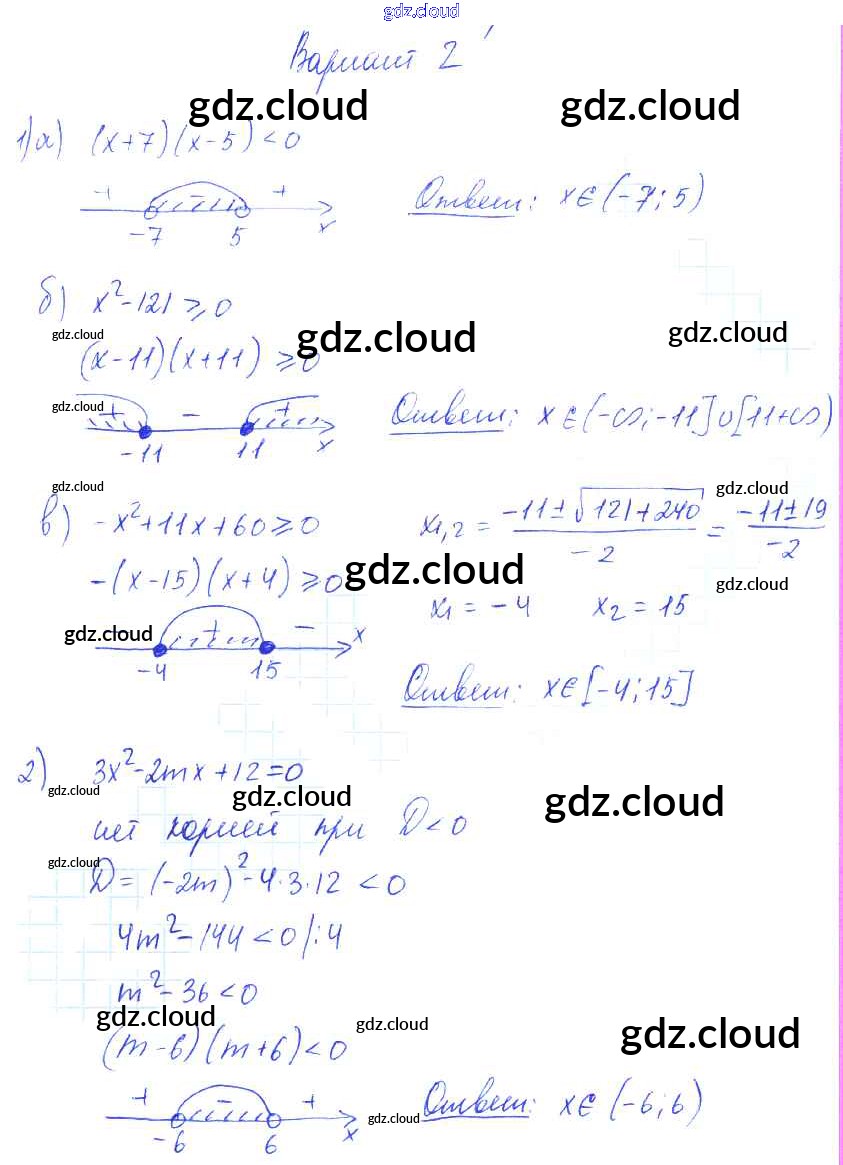 gdz.cloud
Вариант 2
gdz.cloud gdz.cloud
1) а) (x+7)(x-5)<0
+ - + Ответ: x∈(-7;5)
-7 5 x
б) x²-121⩾0
gdz.cloud gdz.cloud gdz.cloud
(x-11)(x+11)⩾0
gdz.cloud + - + Ответ: x∈(-∞;-11]∪[11+∞)
-11 11 x
gdz.cloud gdz.cloud
в) -x²+11x+60⩾0 x₁,₂ = (-11±√(121+240))/(-2) = (-11±19)/(-2)
-(x-15)(x+4)⩾0 gdz.cloud gdz.cloud
x₁ = -4 x₂ = 15
gdz.cloud - + - x
-4 15
Ответ: x∈[-4;15]
2) 3x²-2mx+12=0
gdz.cloud gdz.cloud gdz.cloud
нет корней при D<0
gdz.cloud
D = (-2m)²-4·3·12<0
4m²-144<0 /:4
m²-36<0
gdz.cloud gdz.cloud gdz.cloud
(m-6)(m+6)<0
+ - + gdz.cloud Ответ: x∈(-6;6)
-6 6 x